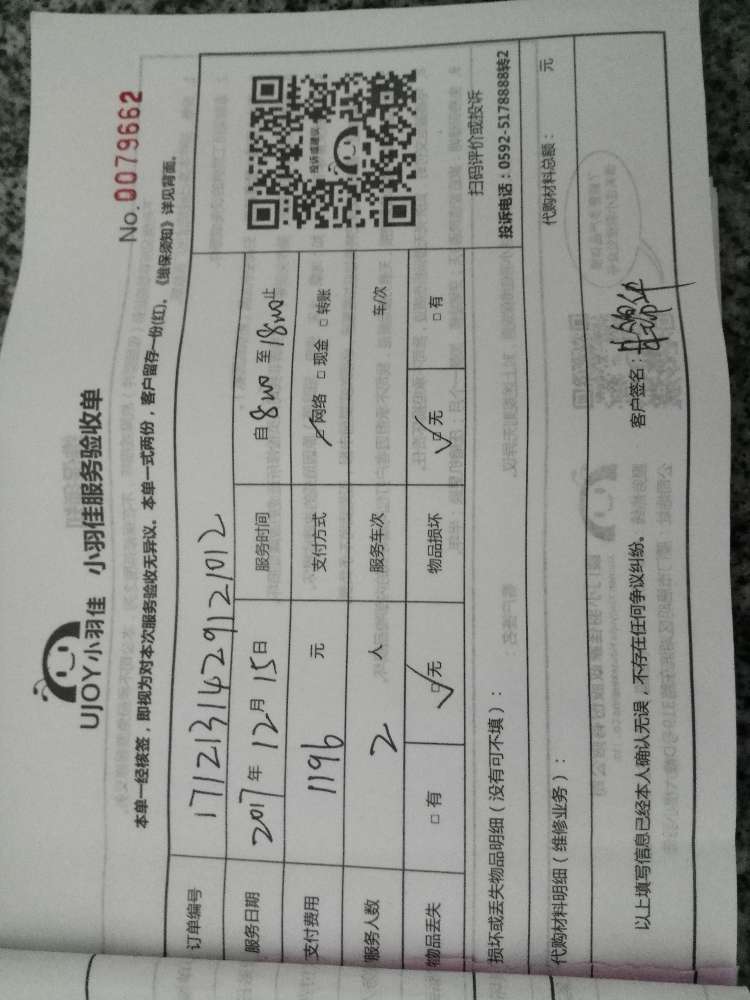 UJOY小羽佳 小羽佳服务验收单
No. 0079662
本单一经核签，即视为对本次服务验收无异议。本单一式两份，客户留存一份(红)。《维保须知》详见背面。
订单编号 171213142912 1012
服务日期 2017年12月15日 服务时间 自 8:00 至 18:00 止
支付费用 1196 元 支付方式 ☑网络 □现金 □转账
服务人数 2 人 服务车次 车/次
物品丢失 □有 ☑无 物品损坏 ☑无 □有
投诉或建议
扫码评价或投诉
投诉电话：0592-5178888转2
损坏或丢失物品明细（没有可不填）：
代购材料明细（维修业务）： 代购材料总额： 元
以上填写信息已经本人确认无误，不存在任何争议纠纷。 客户签名：